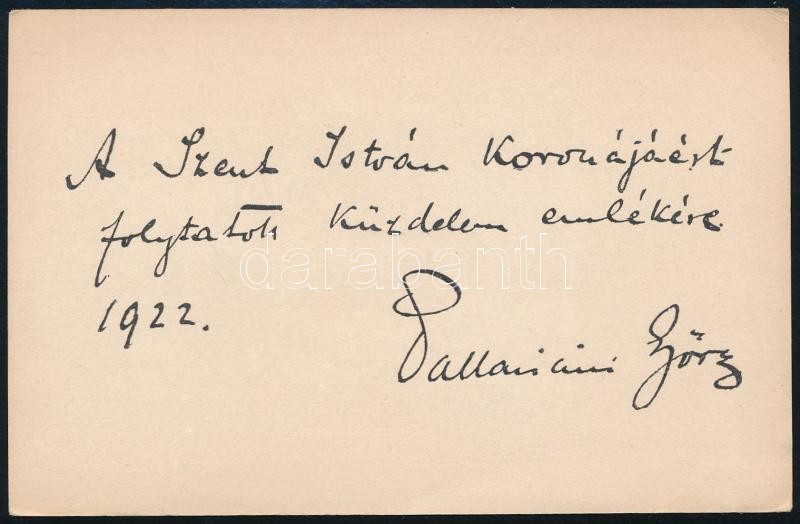 A Szent István Koronájáért
folytatott küzdelem emlékére
1922.
Pallavicini György
darabanth